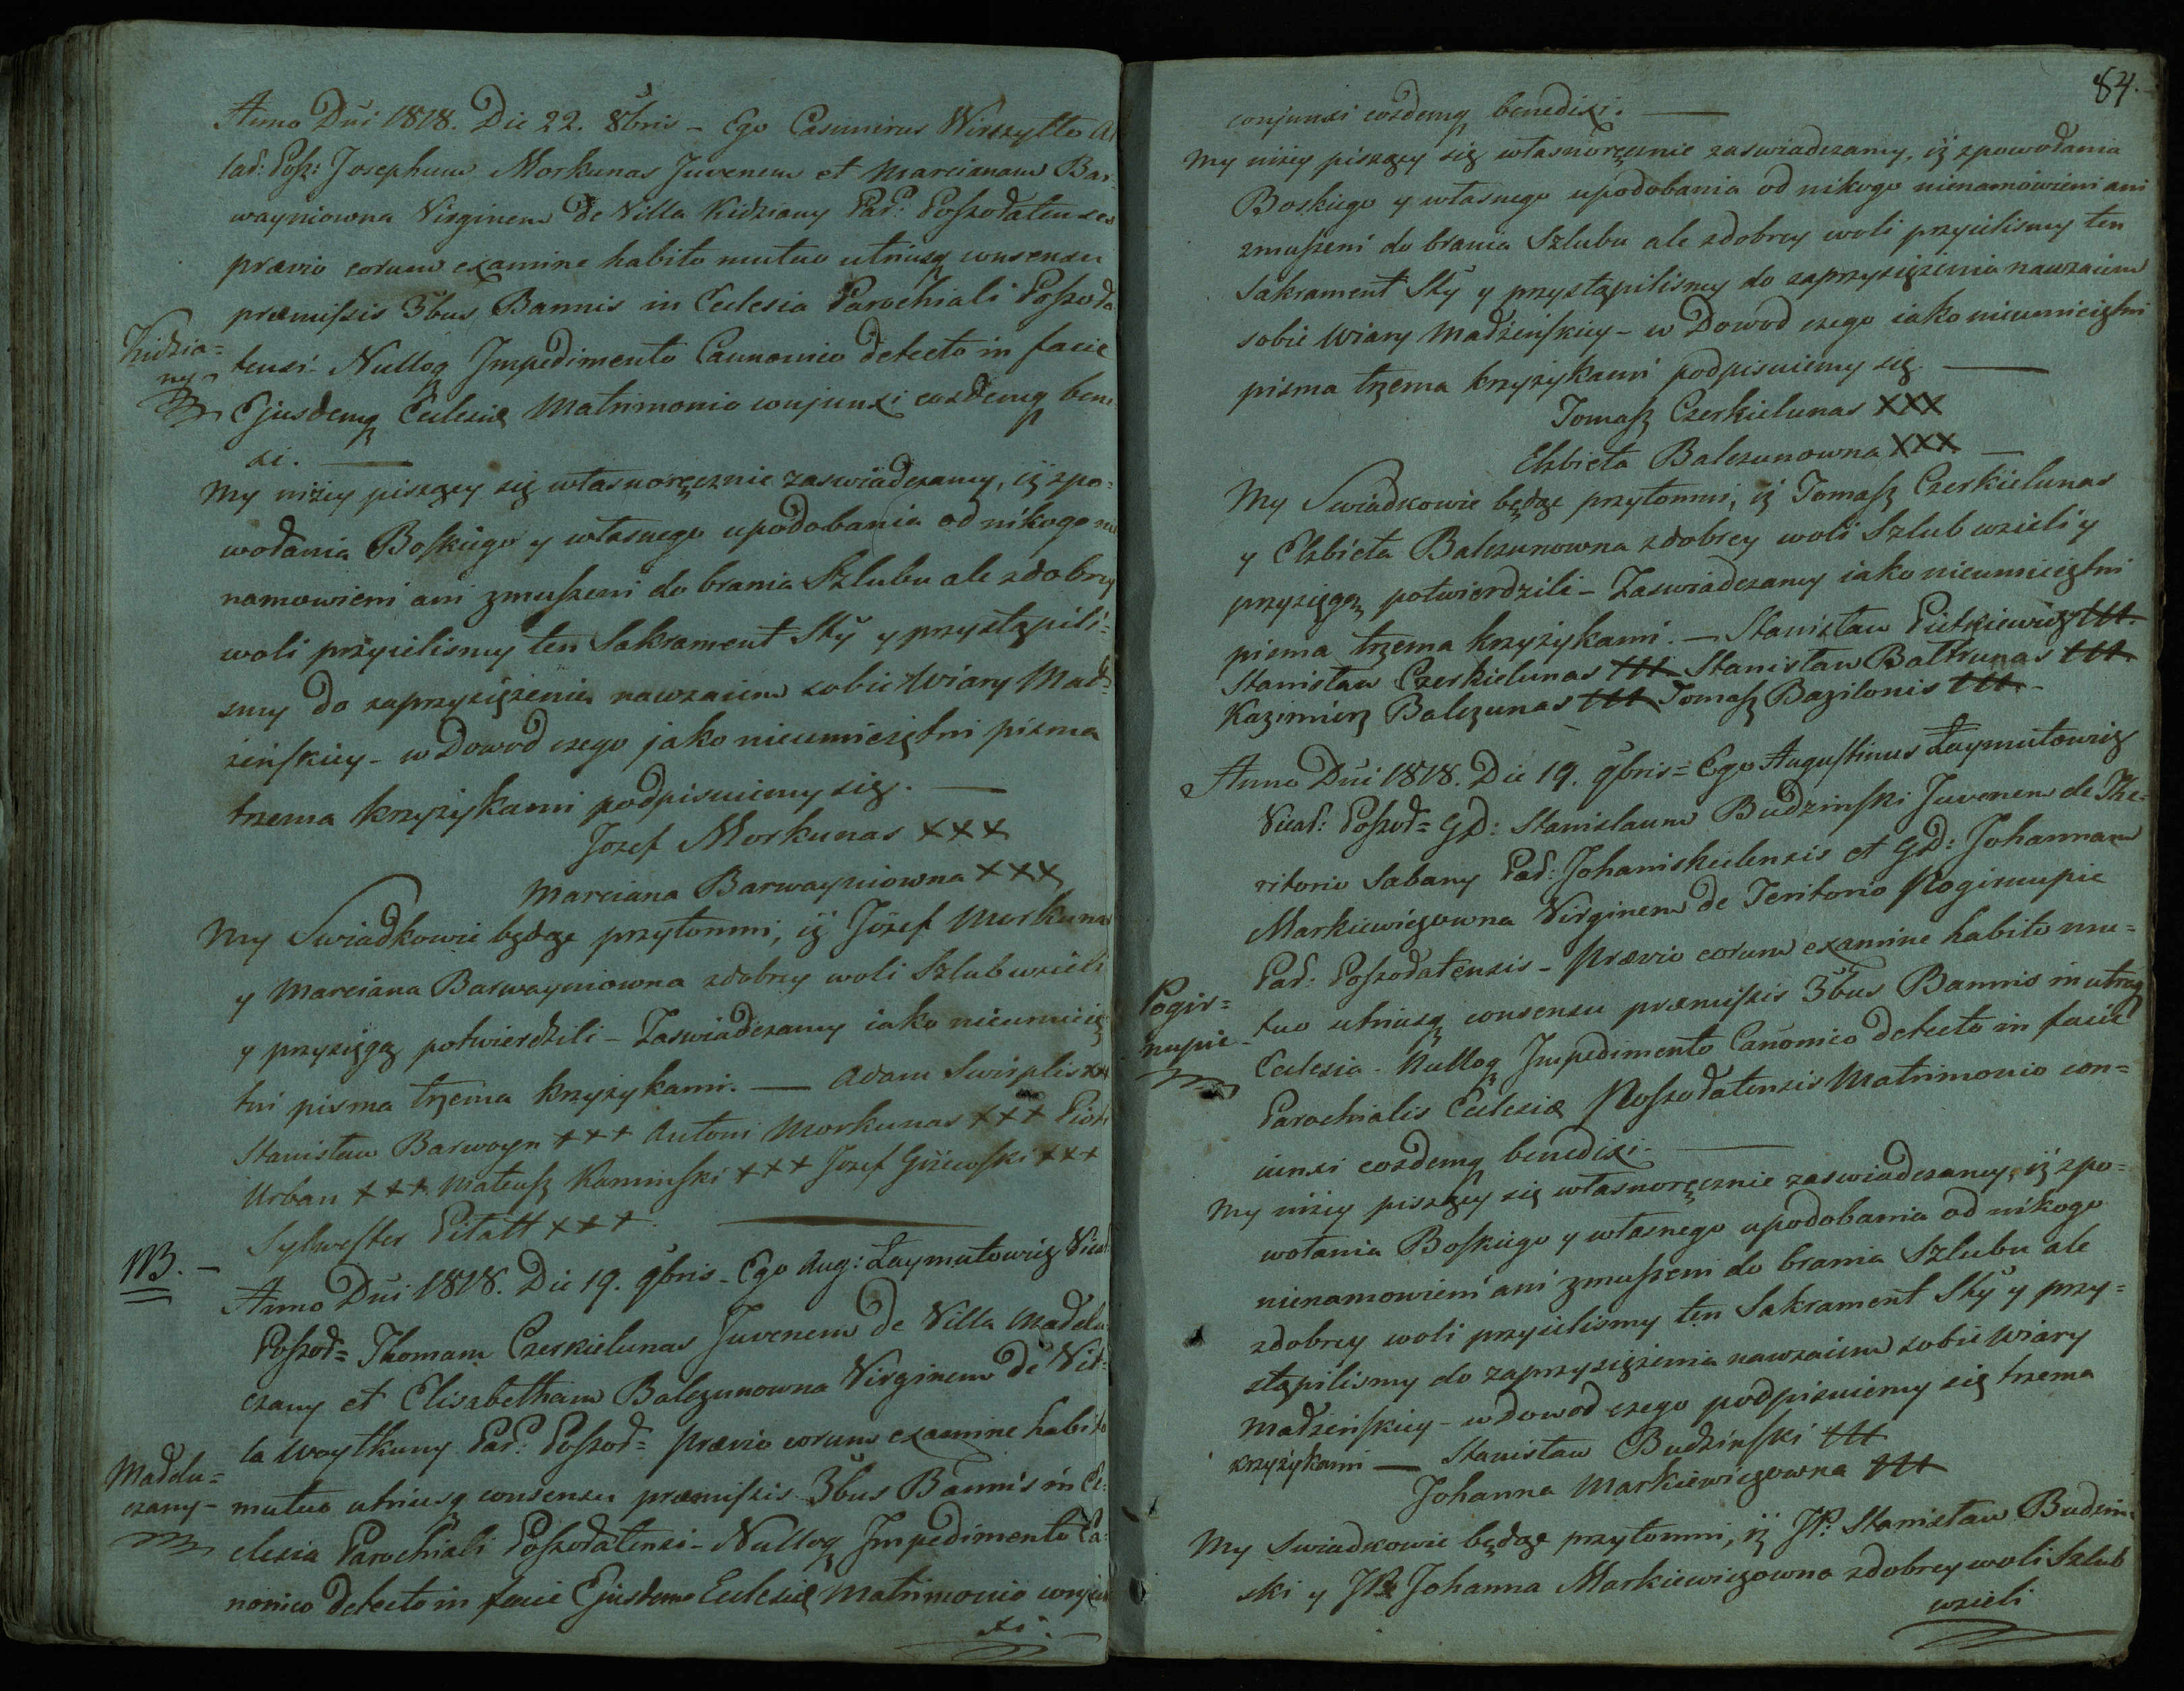 Anno Dni 1818. Die 22. 8bris - Ego Casimirus Wirszyłło
Posz: Josephum Morkunas Juvenem et Marcianam Bar-
wayniowna Virginem de Villa Kidziany Par: Poszołatenses
prævio eorum examine habito mutuo utriusq consensu
præmissis 3bus Bannis in Ecclesia Parochiali Poszoła
Kidzia=
ny
tensi - Nulloq Impedimento Caunonico detecto in facie
Ejusdemq Eclesiæ Matrimonio conjunxi eosdemq bene
xi. —
My niżey piszący się własnoręcznie zaswiadczamy, iż zpo-
wołania Boskiego y własnego upodobania od nikogo
namowieni ani zmuszeni do brania Szlubu ale zdobrey
woli przyielismy ten Sakrament Sty y przystąpili-
smy do zaprzysiężenia nawzaiem sobie Wiary Mał-
żenskiey - w Dowod czego jako nieumieiętni pisma
trzema krzyżykami podpisuiemy się. —
Jozef Morkunas xxx
Marciana Barwayniowna xxx
My Swiadkowie będąc przytomni, iż Józef Morkunas
y Marciana Barwayniowna zdobrey woli Szlub wzieli
y przysięgą potwierdzili - Zaswiadczamy iako nieumieię
tni pisma trzema krzyżykami. — Adam Swirplis xxx
Stanisław Barwayn +++ Antoni Morkunas +++ Piotr
Urban +++ Mateusz Kaminski +++ Jozef Giżewski +++
Sylwester Pitatt +++.
113. -
Anno Dni 1818. Die 19. 9bris - Ego Aug: Łaymutowicz
Poszoł= Thomam Czerkielunas Juvenem de Villa Madelu
czany et Elisabetham Balczunowna Virginem de Vil-
la Woytkuny Par: Poszoł= prævio eorum examine habito
Madelu=
czany -
mutuo utriusq consensu præmissis 3bus Bannis in Ec-
clesia Parochiali Poszołatensi - Nulloq Impedimento Ca-
nonico detecto in facie Ejusdem Eclesiæ Matrimonio conjun
xi.
84.
conjunxi eosdemq benedixi. —
My niżey piszący się własnoręcznie zaswiadczamy, iż zpowołania
Boskiego y własnego upodobania od nikogo nienamówieni ani
zmuszeni do brania Szlubu ale zdobrey woli przyielismy ten
Sakrament Sty y przystąpilismy do zaprzysiężenia nawzaiem
sobie Wiary Małżeńskiey - w Dowod czego iako nieumieiętni
pisma trzema krzyżykami podpisuiemy się. —
Tomasz Czerkielunas XXX
Elzbieta Balczunowna XXX —
My Swiadkowie będąc przytomni, iż Tomasz Czerkielunas
y Elzbieta Balczunowna zdobrey woli Szlub wzieli y
przysięgą potwierdzili - Zaswiadczamy iako nieumieiętni
pisma trzema krzyżykami. — Stanisław Pietkiewicz +++.
Stanisław Czerkielunas +++ Stanisław Baltrunas +++.
Kazimierz Balczunas +++ Tomasz Bazilonis +++. -
Anno Dni 1818. Die 19. 9bris = Ego Augustinus Łaymutowicz
Vicar: Poszoł= GD: Stanislaum Budzinski Juvenem de The-
ritorio Sabany Par: Johaniskielensis et GD: Johannam
Markiewiczowna Virginem de Teritorio Pogirnupie
Par: Poszołatensis - Prævio eorum examine habito mu=
Pogir=
nupie -
tuo utriusq consensu præmissis 3bus Bannis in utraq
Eclesia - Nulloq Impedimento Canonico detecto in facie
Parochialis Eclesiæ Poszołatensis Matrimonio con=
iunxi eosdemq benedixi. —
My niżey piszący się własnoręcznie zaswiadczamy, iż zpo=
wołania Boskiego y własnego upodobania od nikogo
nienamowieni ani zmuszeni do brania Szlubu ale
zdobrey woli przyielismy ten Sakrament Sty y przy=
stąpilismy do zaprzysiężenia nawzaiem sobie Wiary
Małżenskiey - w dowod czego podpisuiemy się trzema
krzyżykami — Stanisław Budzinski +++
Johanna Markiewiczowna +++
My Swiadkowie będąc przytomni, iż JP: Stanisław Budzin-
ski y JP Johanna Markiewiczowna zdobrey woli Szlub
wzieli